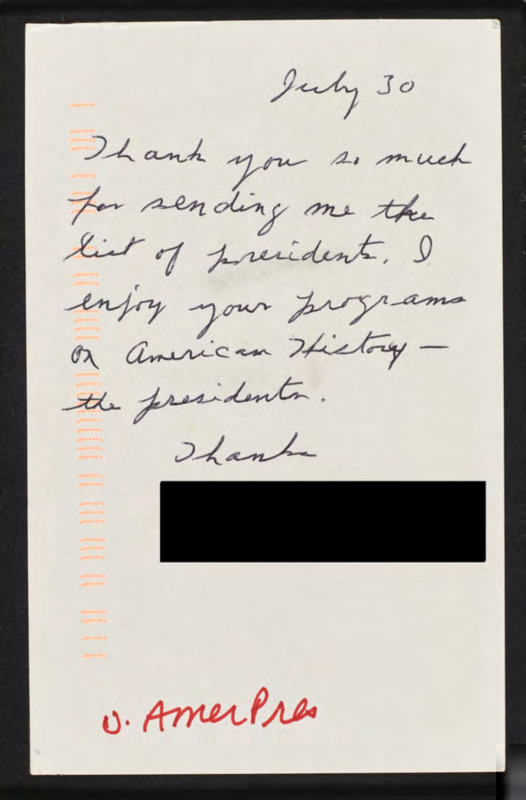 July 30
Thank you so much
for sending me the
list of presidents. I
enjoy your programs
on American History —
the presidents.
Thanks
v. AmerPres